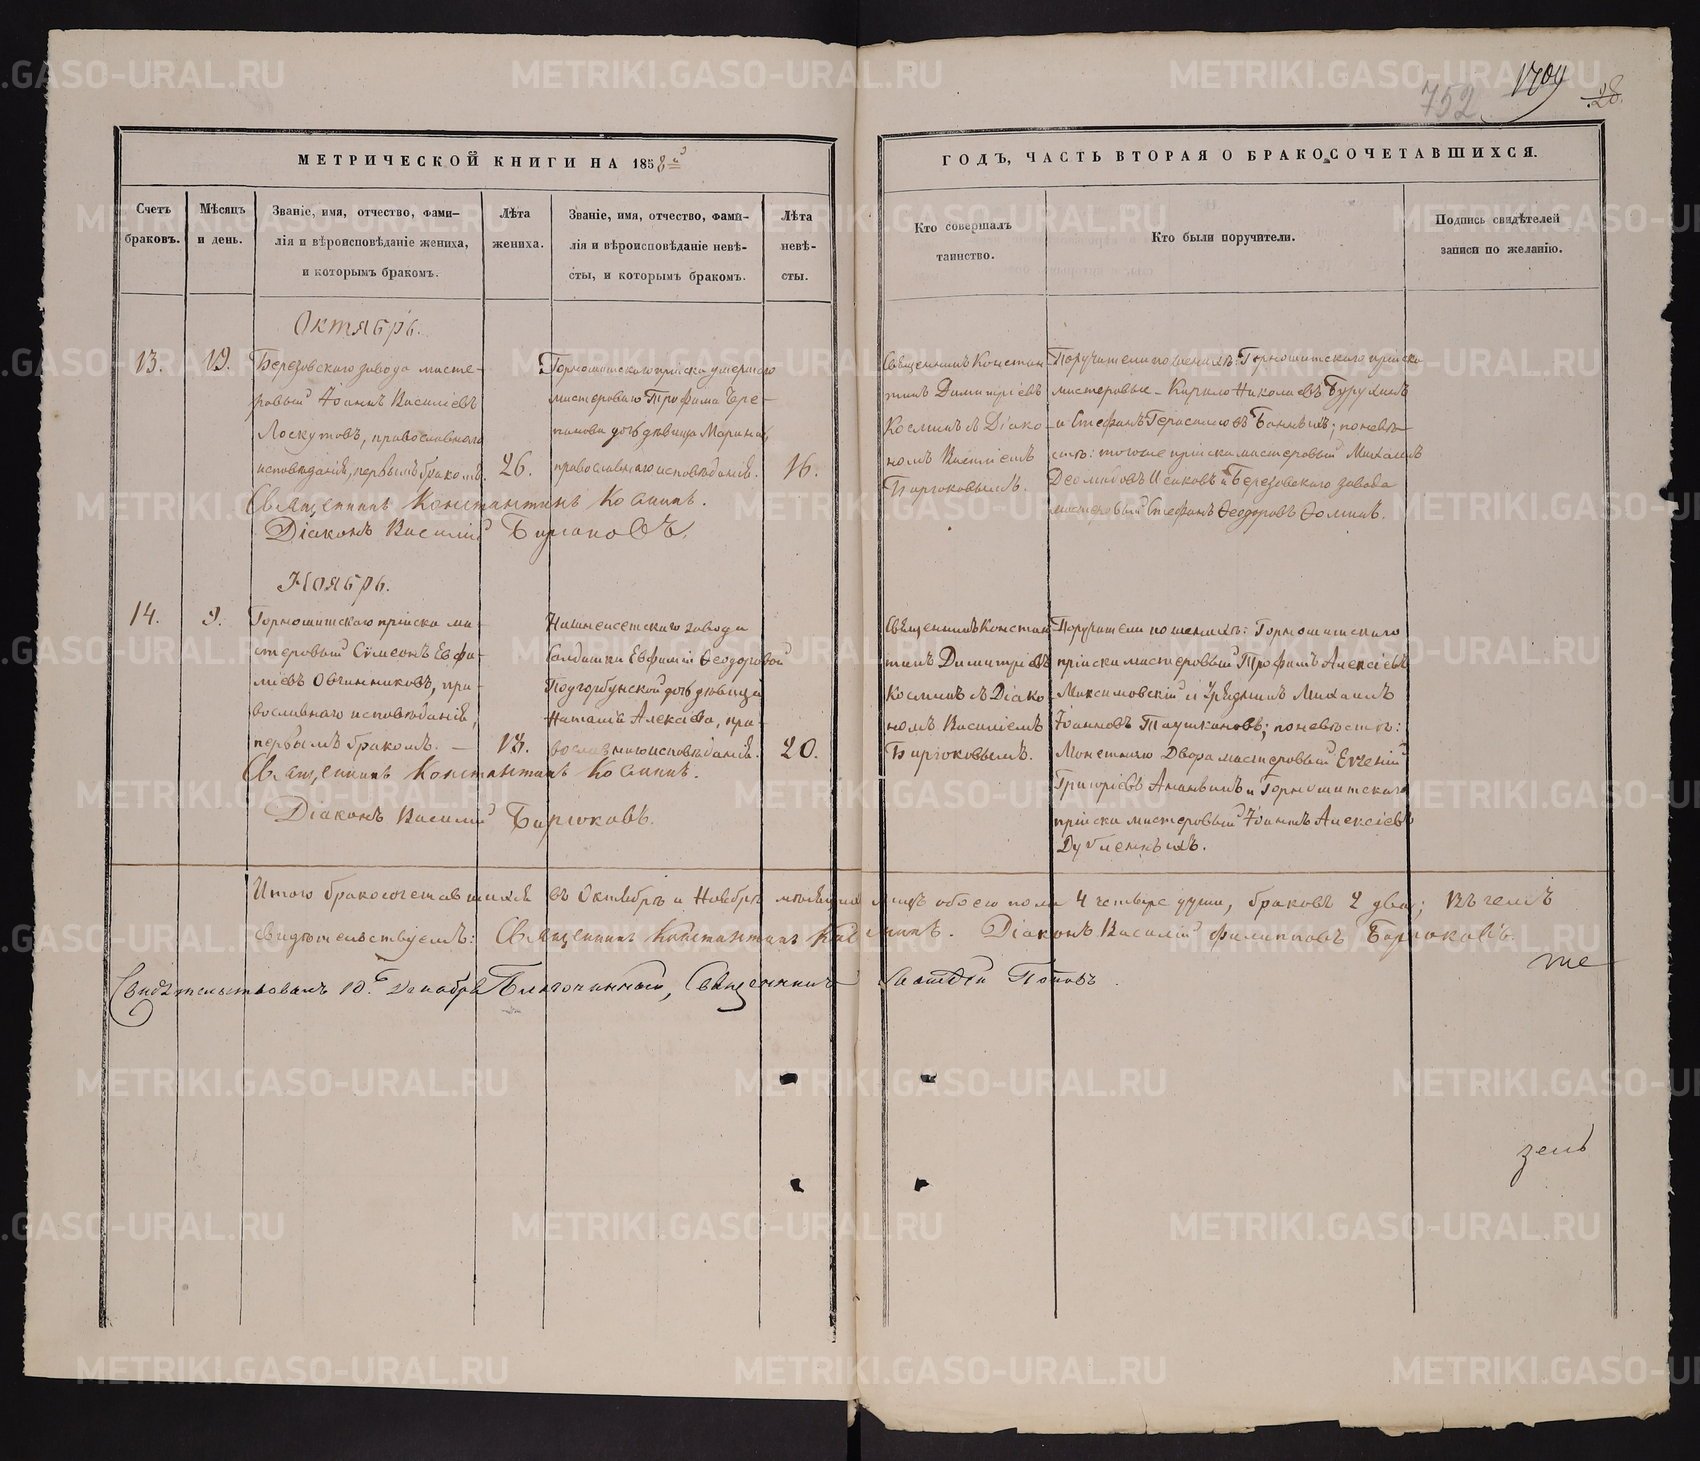 752
1709
28.
МЕТРИЧЕСКОЙ КНИГИ НА 1858й
ГОДЪ, ЧАСТЬ ВТОРАЯ О БРАКОСОЧЕТАВШИХСЯ.
Счетъ браковъ.
Мѣсяцъ и день.
Званіе, имя, отчество, фами-
лія и вѣроисповѣданіе жениха,
и которымъ бракомъ.
Лѣта жениха.
Званіе, имя, отчество, фами-
лія и вѣроисповѣданіе невѣ-
сты, и которымъ бракомъ.
Лѣта невѣ-
сты.
Кто совершалъ
таинство.
Кто были поручители.
Подпись свидѣтелей
записи по желанію.
Октябрь.
13.
19.
Березовскаго завода масте-
ровый Іоаннъ Василіевъ
Лоскутовъ, православнаго
исповѣданія, первымъ бракомъ.
26.
Горнощитскаго пріиска умершаго
мастероваго Трофима Чере-
панова дочь дѣвица Марина,
православнаго исповѣданія.
16.
Священникъ Констан
тинъ Димитріевъ
Косминъ съ Діако-
номъ Василіемъ
Бирюковымъ.
Поручители по женихѣ: Горнощитскаго пріиска
мастеровые – Кирило Николаевъ Бурухинъ
и Стефанъ Герасимовъ Банныхъ; по невѣ-
стѣ: тогоже пріиска мастеровый Михаилъ
Исаковъ и Березовскаго завода
мастеровый Стефанъ Ѳеодоровъ Ѳоминъ.
Священникъ Константинъ Косминъ.
Діаконъ Василій Бирюковъ.
Ноябрь.
14.
9.
Горнощитскаго пріиска ма-
стеровый Сѵмеонъ Евфи-
міевъ Овчинниковъ, пра-
вославнаго исповѣданія,
первымъ бракомъ. –
18.
Нижнеисетскаго завода
Солдатки Евфиміи Ѳеодоровой
Подгорбунской дочь дѣвица
Наталія Алексіева, пра-
вославнаго исповѣданія.
20.
Священникъ Констан
тинъ Димитріевъ
Косминъ съ Діако-
номъ Василіемъ
Бирюковымъ.
Поручители по женихѣ: Горнощитскаго
пріиска мастеровый Трофимъ Алексіевъ
Максимовскій и Урядникъ Михаилъ
Іоанновъ Таушкановъ; по невѣстѣ:
Монетнаго Двора мастеровый Евгеній
Григоріевъ Ананьинъ и Горнощитскаго
пріиска мастеровый Іоаннъ Алексіевъ
Дубленныхъ.
Священникъ Константинъ Косминъ.
Діаконъ Василій Бирюковъ.
Итого бракосочетавшихся въ Октябрѣ и Ноябрѣ мѣсяцахъ лицъ обоего пола 4 четыре души, браковъ 2 два; въ чемъ
свидѣтельствуемъ: Священникъ Константинъ Косминъ. Діаконъ Василій Филипповъ Бирюковъ.
Свидѣтельствовалъ 10го Декабря Благочинный, Священникъ Поповъ.